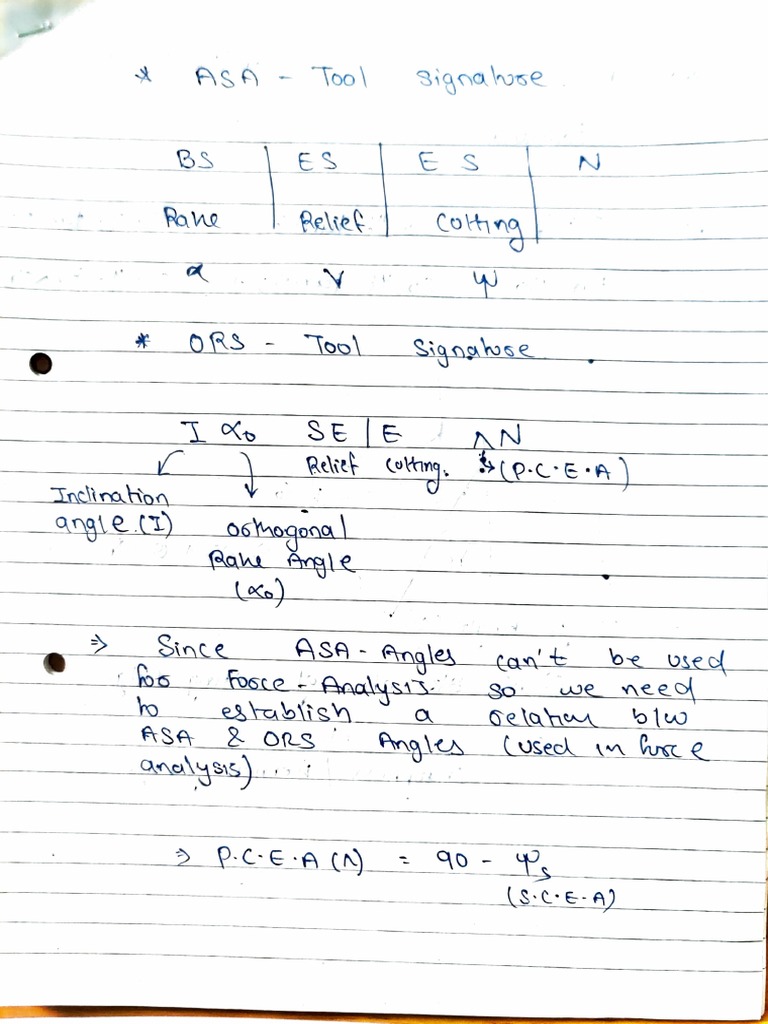 * ASA - Tool Signature
BS | ES | E S | N
Rake | Relief | Cutting |
α γ ψ
* ORS - Tool Signature
I α₀ SE | E λ N
Relief cutting. ↳ (P.C.E.A)
Inclination
angle.(I) orthogonal
Rake Angle
(α₀)
⇒ Since ASA - Angles can't be used
for Force - Analysis. so we need
to establish a relation b/w
ASA & ORS Angles (used in force
analysis)....
⇒ P.C.E.A (λ) = 90 - ψs
(S.C.E.A)